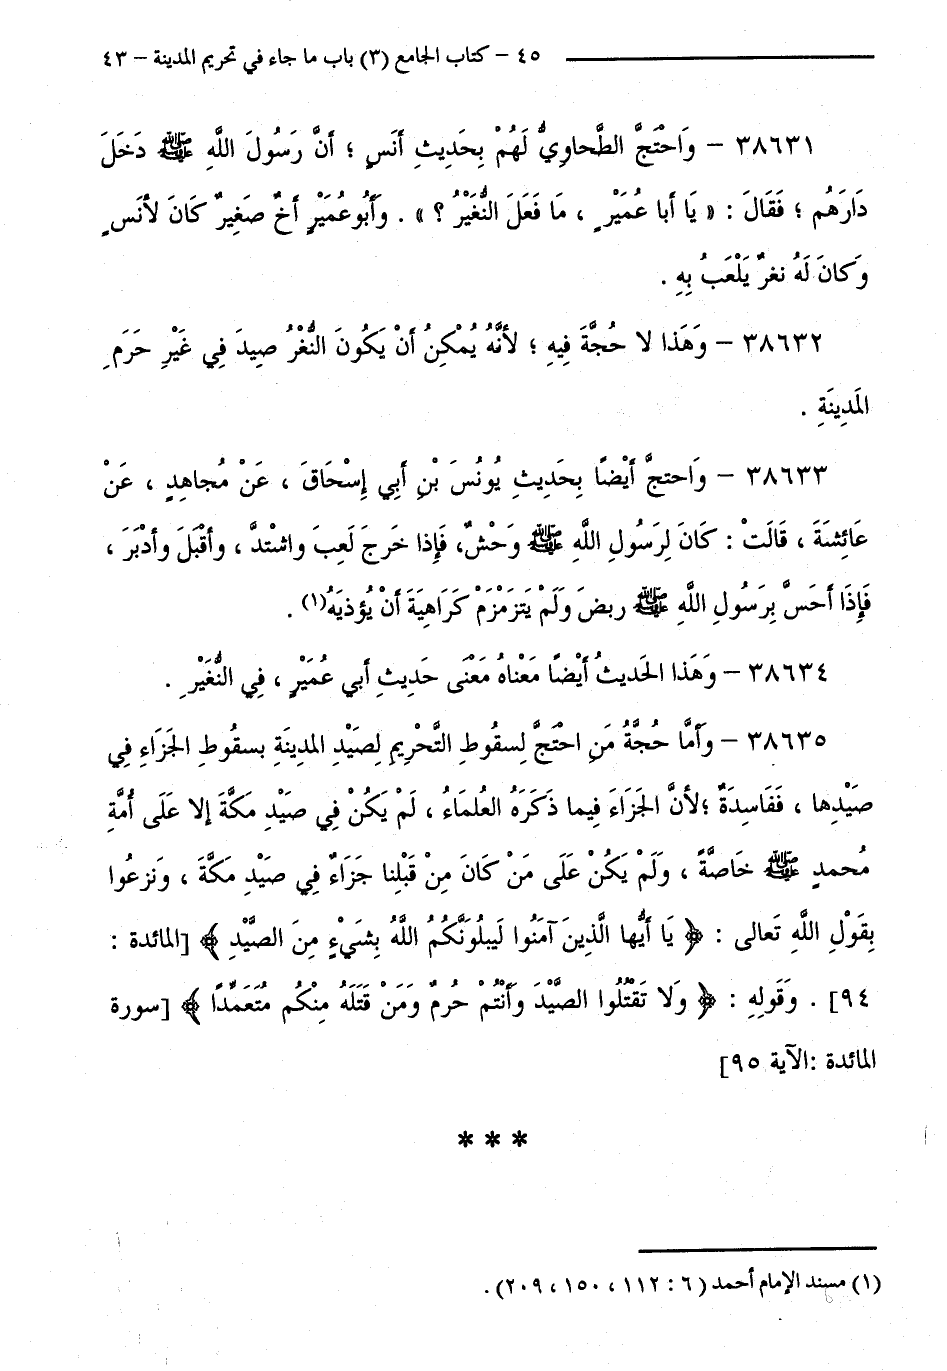 ٤٥ – كتاب الجامع (٣) باب ما جاء في تحريم المدينة – ٤٣
٣٨٦٣١ – وَاحْتَجَّ الطَّحاوِيُّ لَهُمْ بِحَدِيثِ أَنَسٍ ؛ أَنَّ رَسُولَ اللَّهِ ﷺ دَخَلَ
دَارَهُم ؛ فَقَالَ : « يَا أبا عُمَيْرٍ ، مَا فَعَلَ النُّغَيْرُ ؟ » . وَأَبُو عُمَيْرٍ أخٌ صَغِيرٌ كَانَ لأنَسٍ
وَكانَ لَهُ نغرٌ يَلْعَبُ بِهِ .
٣٨٦٣٢ – وَهَذا لا حُجَّةَ فِيهِ ؛ لأنَّهُ يُمْكِنُ أَنْ يَكُونَ النُّغْرُ صِيدَ فِي غَيْرِ حَرَمِ
المَدِينَةِ .
٣٨٦٣٣ – وَاحتجَّ أَيْضًا بِحَدِيثِ يُونُسَ بْنِ أبِي إِسْحَاقَ ، عَنْ مُجاهِدٍ ، عَنْ
عَائِشَةَ ، قَالَتْ : كَانَ لِرَسُولِ اللَّهِ ﷺ وَحْشٌ، فَإِذا خَرجَ لَعِبَ واشتدَّ ، وأقْبَلَ وأدْبَرَ ،
فَإِذَا أَحَسَّ بِرَسُولِ اللَّهِ ﷺ ربضَ وَلَمْ يَتزَمْزَمْ كَرَاهِيَةَ أَنْ يُؤْذِيَهُ(١) .
٣٨٦٣٤ – وَهَذا الحَديثُ أَيْضًا مَعْناهُ مَعْنَى حَدِيثِ أبي عُمَيْرٍ ، فِي النُّغَيْرِ .
٣٨٦٣٥ – وأَمَّا حُجَّةُ مَنِ احْتَجَّ لِسقُوطِ التَّحْرِيمِ لِصَيْدِ المدِينَةِ بسقُوطِ الجَزَاءِ فِي
صَيْدِها ، فَفَاسِدَةٌ ؛لأنَّ الجَزَاءَ فِيما ذَكَرَهُ العُلماءُ ، لَمْ يَكُنْ فِي صَيْدِ مكَّةَ إلا عَلَى أُمَّةِ
مُحمدٍ ﷺ خَاصَّةً ، وَلَمْ يَكُنْ عَلَى مَنْ كَانَ مِنْ قَبْلِنا جَزَاءٌ فِي صَيْدِ مَكَّةَ ، وَنزعُوا
بِقَوْلِ اللَّهِ تَعالى : ﴿ يَا أَيُّها الَّذِينَ آمَنُوا لَيبلُوَنَّكُمُ اللَّهُ بِشَيْءٍ مِنَ الصَّيْدِ ﴾ [المائدة :
٩٤] . وَقَولِهِ : ﴿ وَلا تَقْتُلُوا الصَّيْدَ وَأَنْتُمْ حُرمٌ وَمَنْ قَتَلَهُ مِنْكُم مُتَعَمِّدًا ﴾ [سورة
المائدة :الآية ٩٥]
* * *
(١) مسند الإمام أحمد (٦ : ١١٢ ، ١٥٠ ، ٢٠٩) .